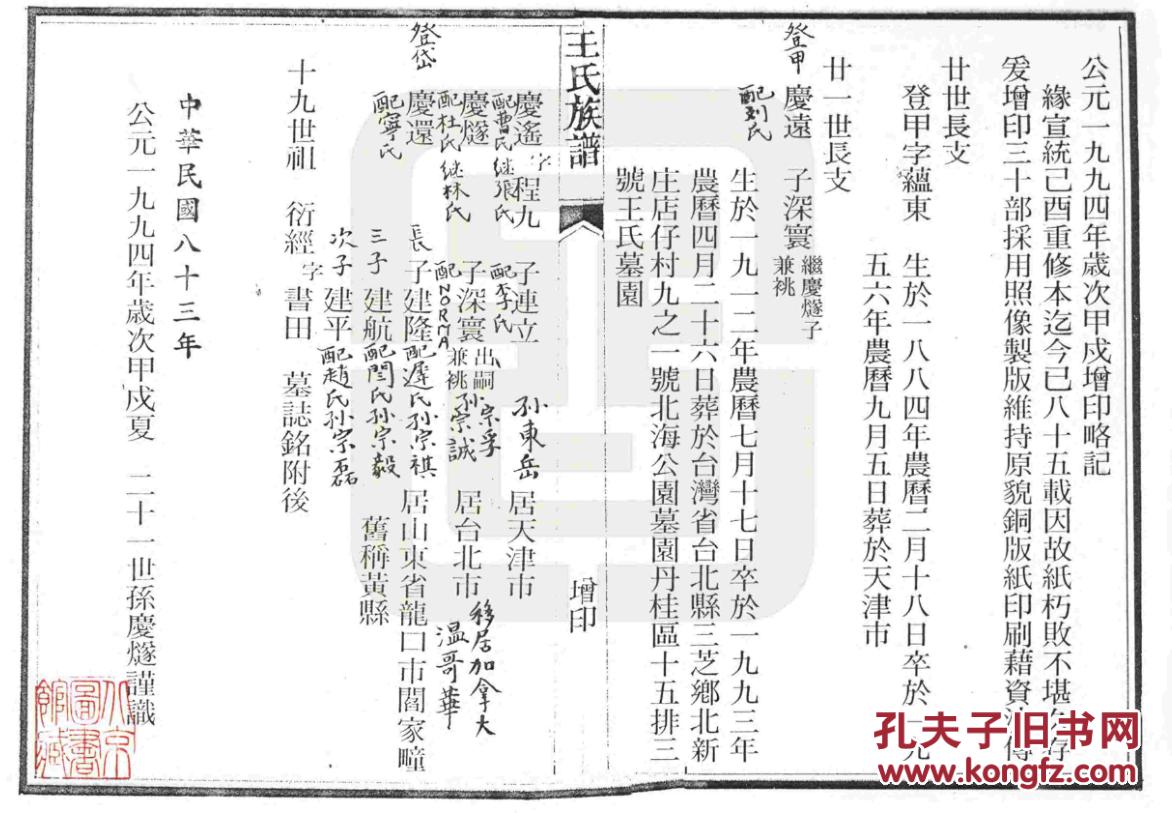 公元一九九四年歲次甲戍增印略記
緣宣統己酉重修本迄今已八十五載因故紙朽敗不堪久存
爰增印三十部採用照像製版維持原貌銅版紙印刷藉資
廿世長支
登甲字蘊東 生於一八八四年農曆二月十八日卒於一九
五六年農曆九月五日葬於天津市
廿一世長支
登甲 慶遠 子深寰 繼慶燧子兼祧
配刘氏
生於一九一二年農曆七月十七日卒於一九九三年
農曆四月二十六日葬於台灣省台北縣三芝鄉北新
庄店仔村九之一號北海公園墓園丹桂區十五排三
號王氏墓園
王氏族譜
增印
慶遙 字程九 子連立 孙東岳 居天津市
配曹氏继張氏 配李氏
登岱 慶燧 子深寰 出嗣兼祧 孙宗孚 孙宗誠 居台北市 移居加拿大温哥華
配杜氏继林氏 配NORMA
慶還 長子建隆 配遲氏孙宗祺 居山東省龍口市閻家疃
配寧氏 三子建航 配閆氏孙宗毅 舊稱黃縣
次子建平 配趙氏孙宗磊
十九世祖 衍經 字書田 墓誌銘附後
中華民國八十三年
公元一九九四年歲次甲戍夏 二十一世孫慶燧謹識
北京圖書館藏
孔夫子旧书网
www.kongfz.com